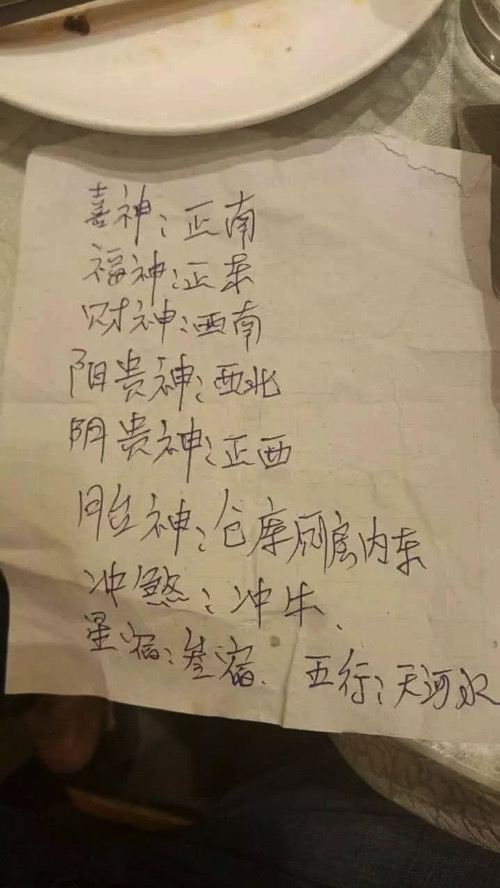 喜神：正南
福神：正东
财神：西南
阳贵神：西北
阴贵神：正西
月台神：仓库厕房内东
冲煞：冲牛、
星宿：参宿. 五行：天河水